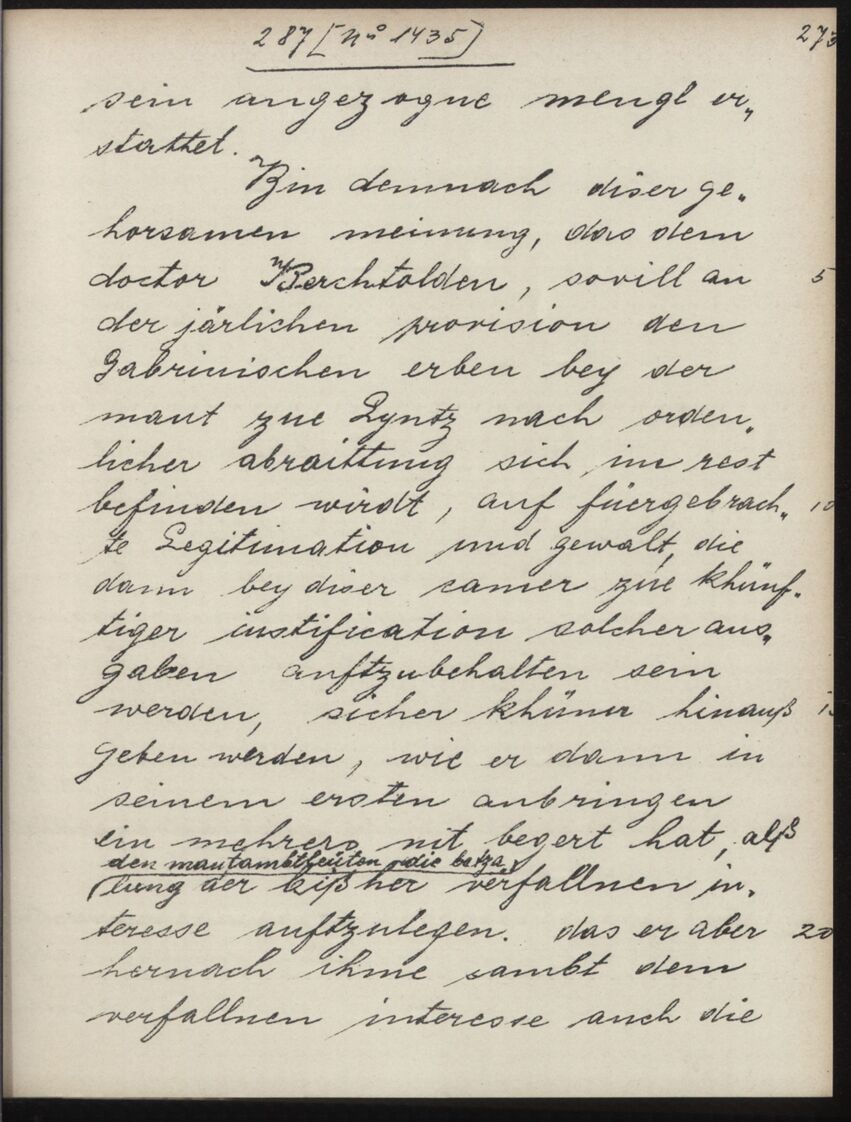 287 [No 1435] 273
sein angezogne mengl er„
stattet.
Bin demnach diser ge„
horsamen meinung, das dem
doctor Perchtolden, sovill an 5
der järlichen provision den
Gabrinischen erben bey der
maut zue Lyntz nach orden„
licher abraittung sich im rest
befinden wirdt, auf füergebrach„ 10
te Legitimation und gewalt, die
dann bey diser camer zue khünf„
tiger iustification solcher aus„
gaben auftzubehalten sein
werden, sicher khüner hinauß
geben werden, wie er dann in
seinem ersten anbringen
ein mehrers nit begert hat, alß
den mautambtleüten die betza„
lung der bißher verfallnen in„
teresse auftzulegen. das er aber 20
hernach ihme sambt dem
verfallnen interesse auch die